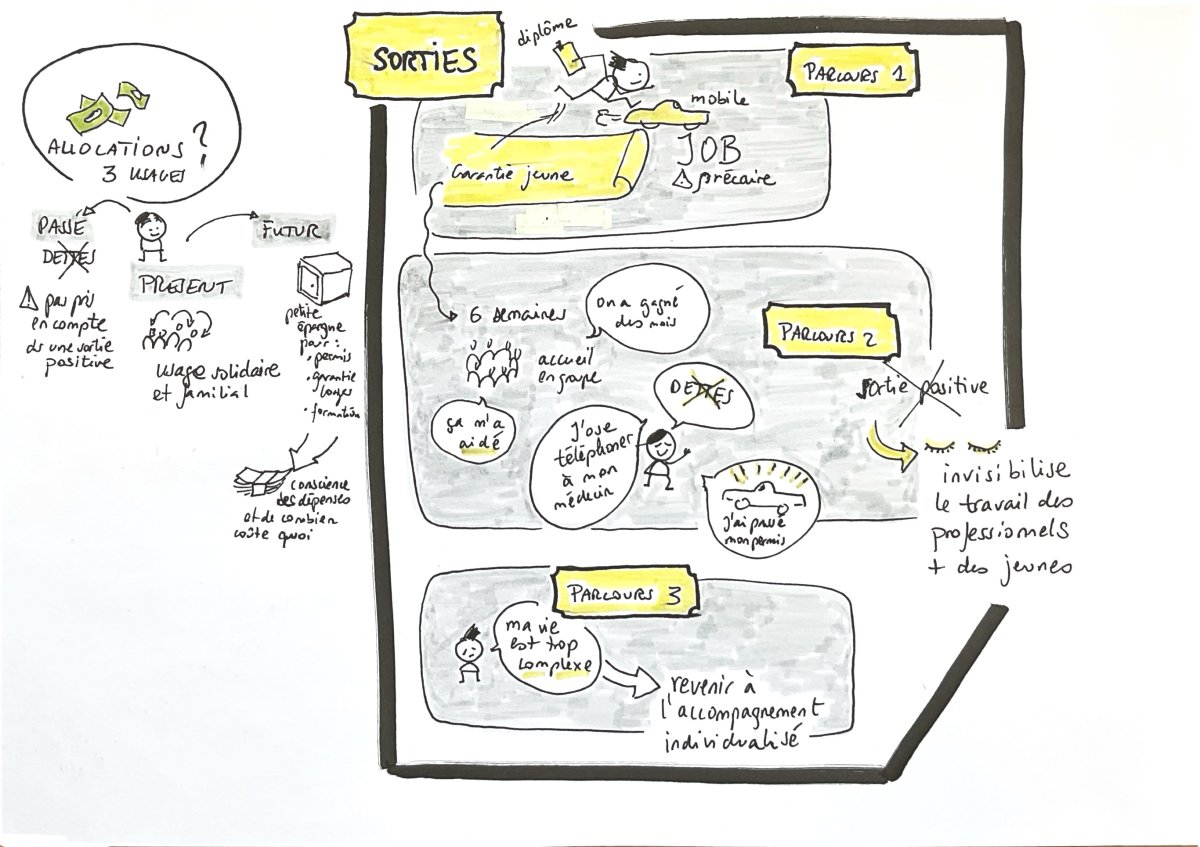 ALLOCATIONS ?
3 USAGES
PASSÉ
DETTES
⚠ pas pris
en compte
ds une sortie
positive
PRESENT
usage solidaire
et familial
FUTUR
petite
épargne
pour :
• permis
• garantie
loyer
• formation
conscience
des dépenses
et de combien
coûte quoi
SORTIES
diplôme
PARCOURS 1
mobile
JOB
⚠ précaire
Garantie jeune
6 semaines
accueil
en groupe
on a gagné
des mois
PARCOURS 2
ça m'a
aidé
DETTES
J'ose
téléphoner
à mon
médecin
J'ai passé
mon permis
sortie positive
invisibilise
le travail des
professionnels
+ des jeunes
PARCOURS 3
ma vie
est trop
complexe
revenir à
l'accompagnement
individualisé